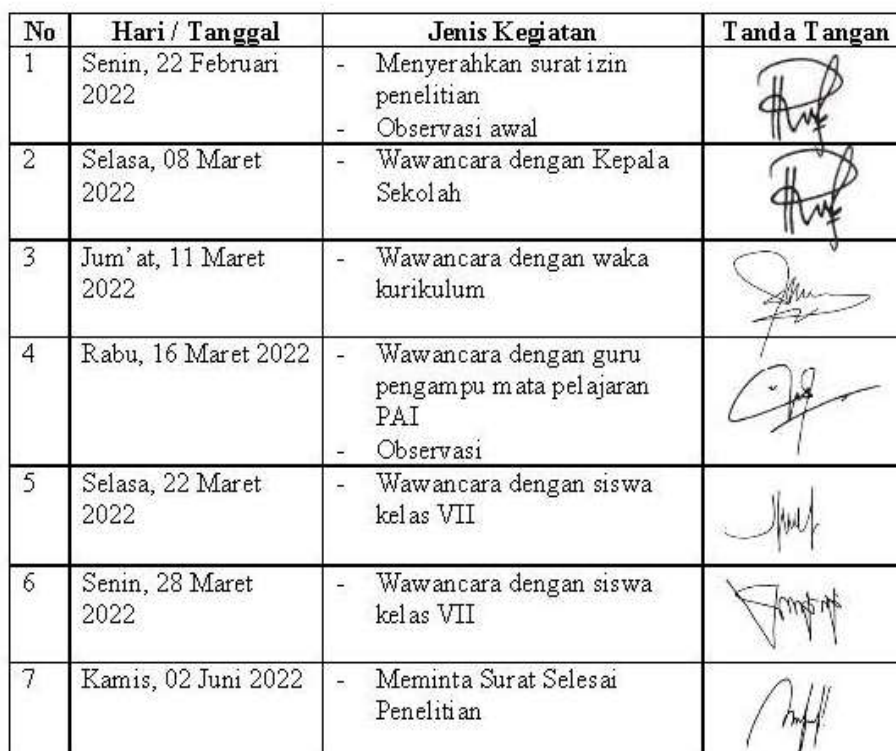 No Hari / Tanggal Jenis Kegiatan Tanda Tangan
1 Senin, 22 Februari 2022 - Menyerahkan surat izin penelitian
- Observasi awal
2 Selasa, 08 Maret 2022 - Wawancara dengan Kepala Sekolah
3 Jum'at, 11 Maret 2022 - Wawancara dengan waka kurikulum
4 Rabu, 16 Maret 2022 - Wawancara dengan guru pengampu mata pelajaran PAI
- Observasi
5 Selasa, 22 Maret 2022 - Wawancara dengan siswa kelas VII
6 Senin, 28 Maret 2022 - Wawancara dengan siswa kelas VII
7 Kamis, 02 Juni 2022 - Meminta Surat Selesai Penelitian